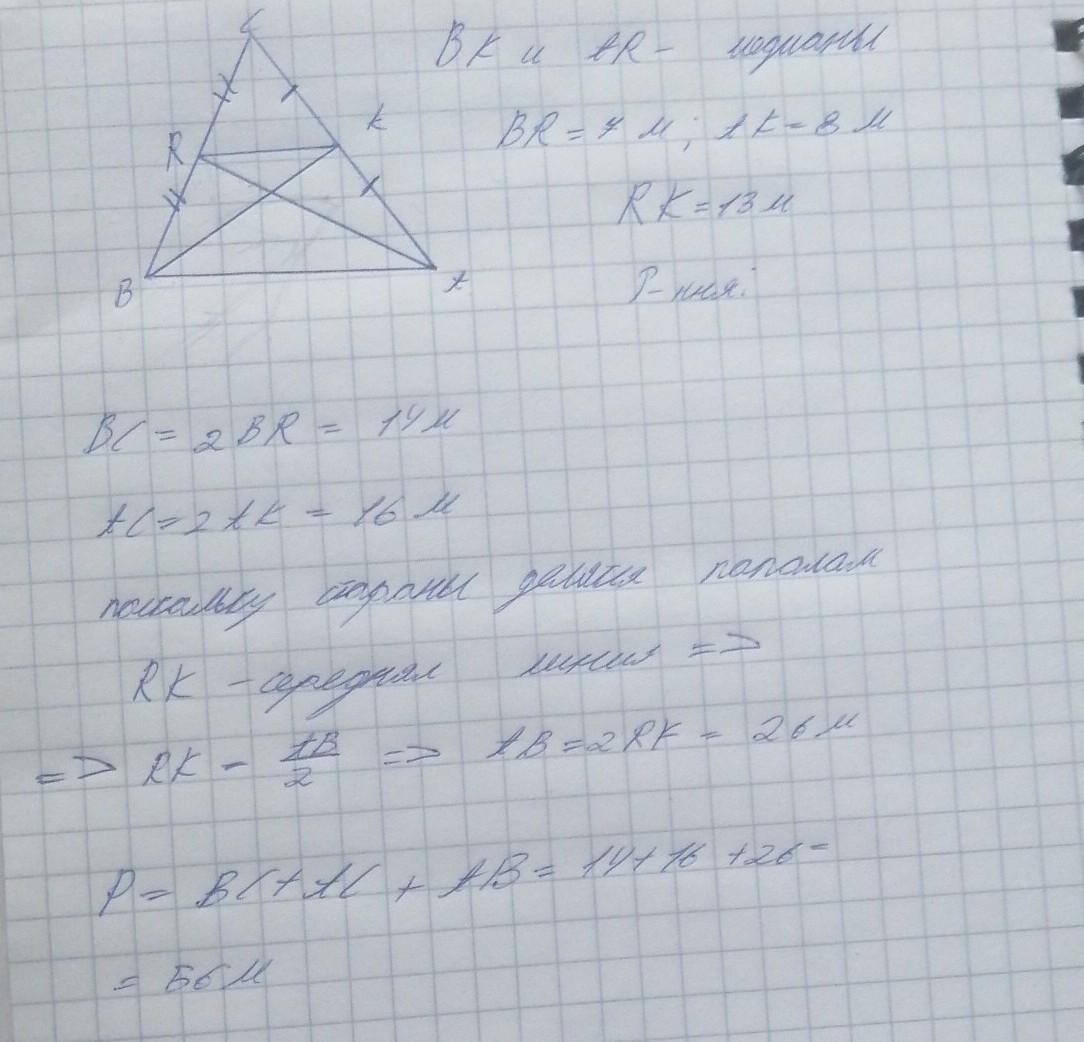 C
BK и AR - медианы
R K
BR = 7 м ; AK = 8 м
RK = 13 м
B A
BC = 2BR = 14 м
AC = 2AK = 16 м
поскольку стороны делятся пополам
RK - середняя линия =>
=> RK = AB/2 => AB = 2RK = 26 м
P = BC + AC + AB = 14 + 16 + 26 =
= 56 м